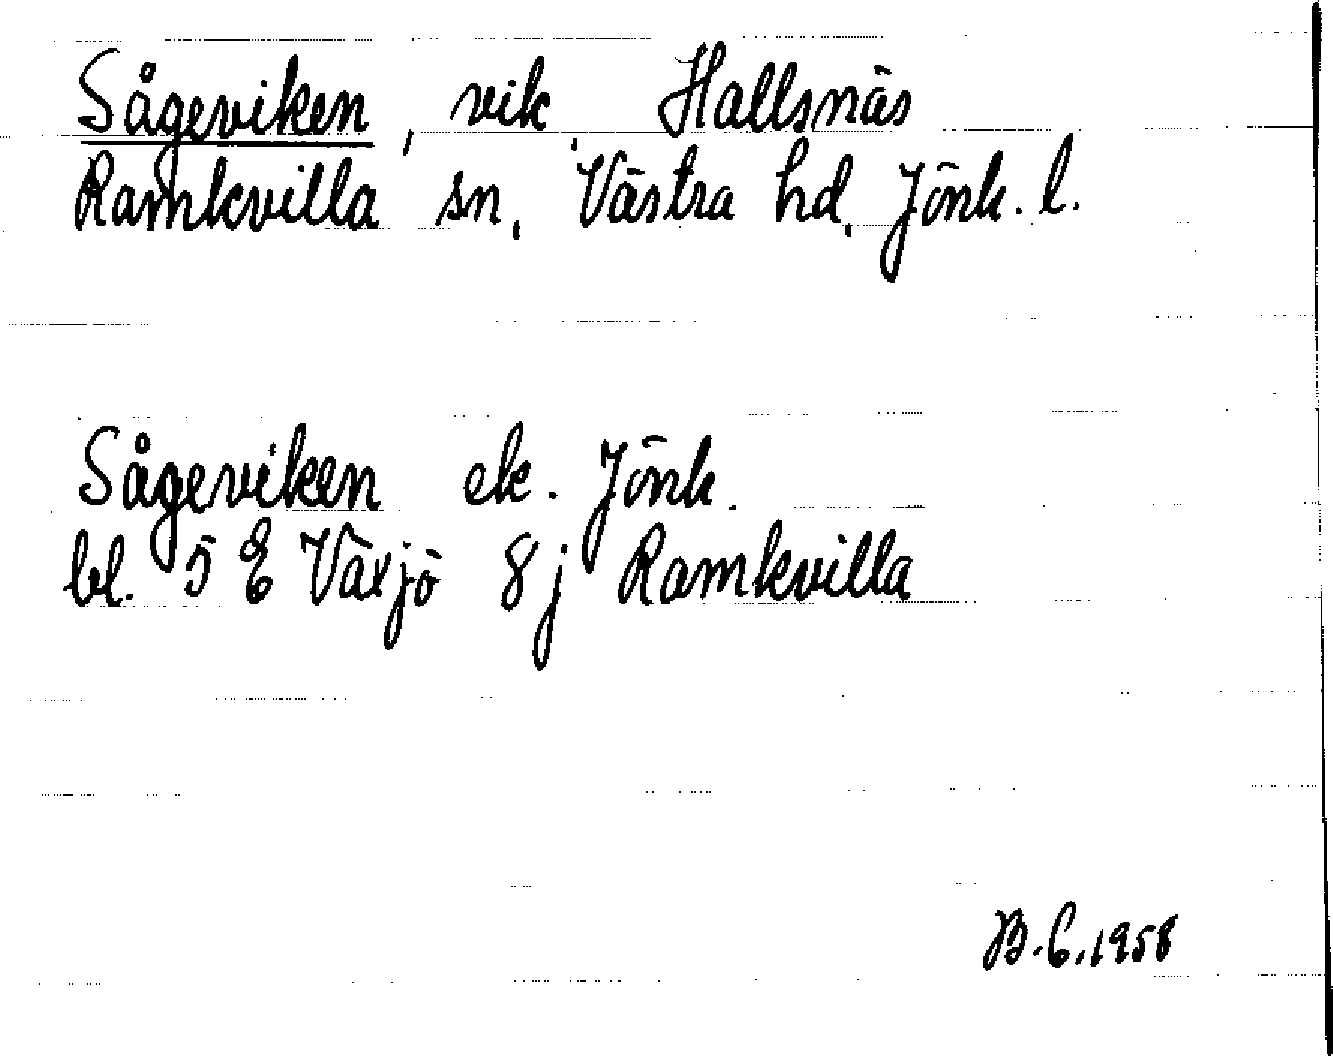 Sågeviken, vik, Hallsnäs
Ramkvilla sn, Västra hd, Jönk. l.
Sågeviken ek. Jönk.
bl. 5 E Växjö 8j Ramkvilla
B.C.1958